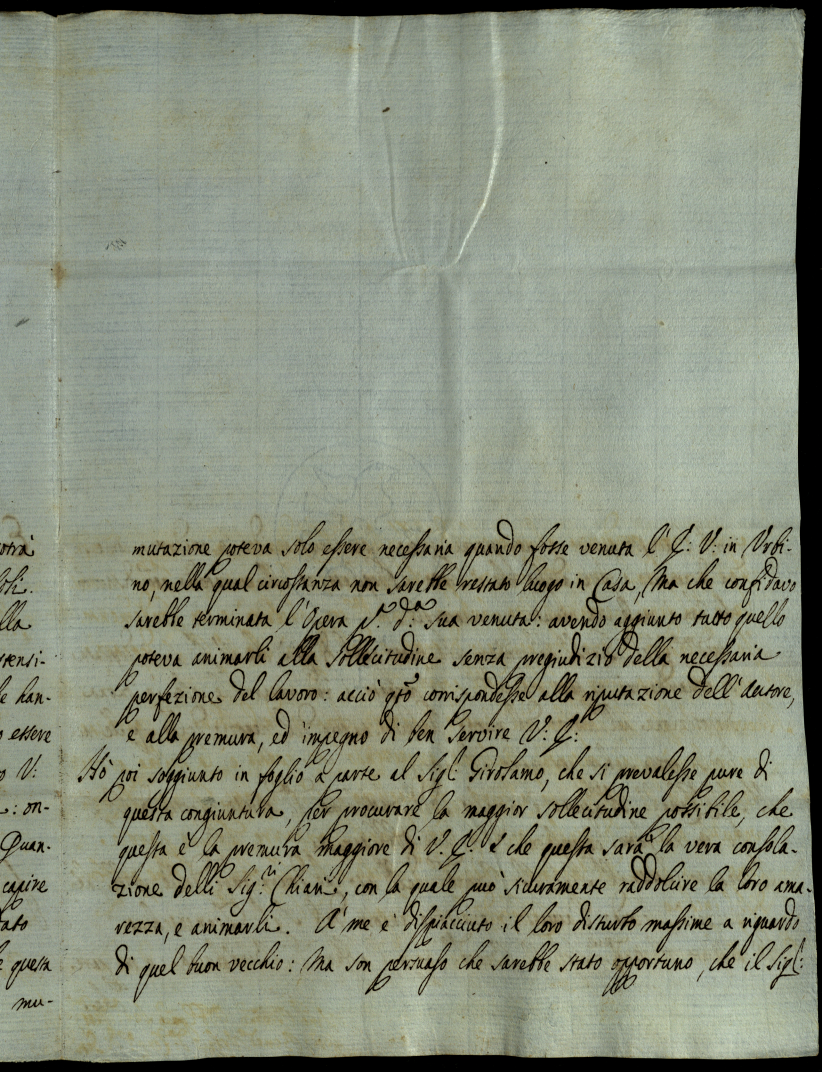 otrà
lla
tensi-
le han-
o essere
o V:
: on-
Quan-
capire
tato
e questa
mu-
mutazione poteva solo essere necessaria quando fosse venuta l' E: V: in Urbi-
no, nella qual circostanza non sarebbe restato luogo in Casa, Ma che confidavo
sarebbe terminata l'Opera p.ª d.ª sua venuta: avendo aggiunto tutto quello
poteva animarli alla sollecitudine senza pregiudizio della necessaria
perfezione del lavoro: acciò q̃to corrispondesse alla riputazione dell'Autore,
e alla premura, ed impegno di ben servire V: E:
Hò poi soggiunto in foglio a parte al Sigʳ: Girolamo, che si prevalesse pure di
questa congiuntura, per procurare la maggior sollecitudine possibile, che
questa è la premura maggiore di V. E. e che questa sarà la vera consola-
zione delli Sig:ri Chiari, con la quale può sicuramente raddolcire la loro ama-
rezza, e animarli. A' me è dispiacciuto il loro disturbo massime a riguardo
di quel buon vecchio: Ma son persuaso che sarebbe stato opportuno, che il Sigʳ: